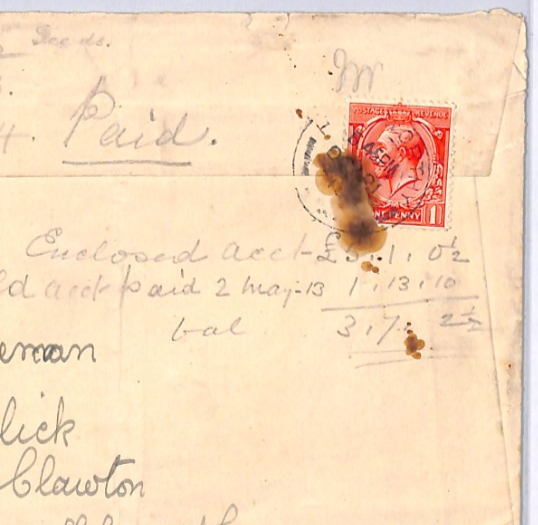 Deeds.
4. Paid.
POSTAGE & REVENUE
ONE PENNY 1
Enclosed acct £5.1.0½
Old acct paid 2 May-13 1.13.10
bal 3.7.2½
eman
lick
Clawton